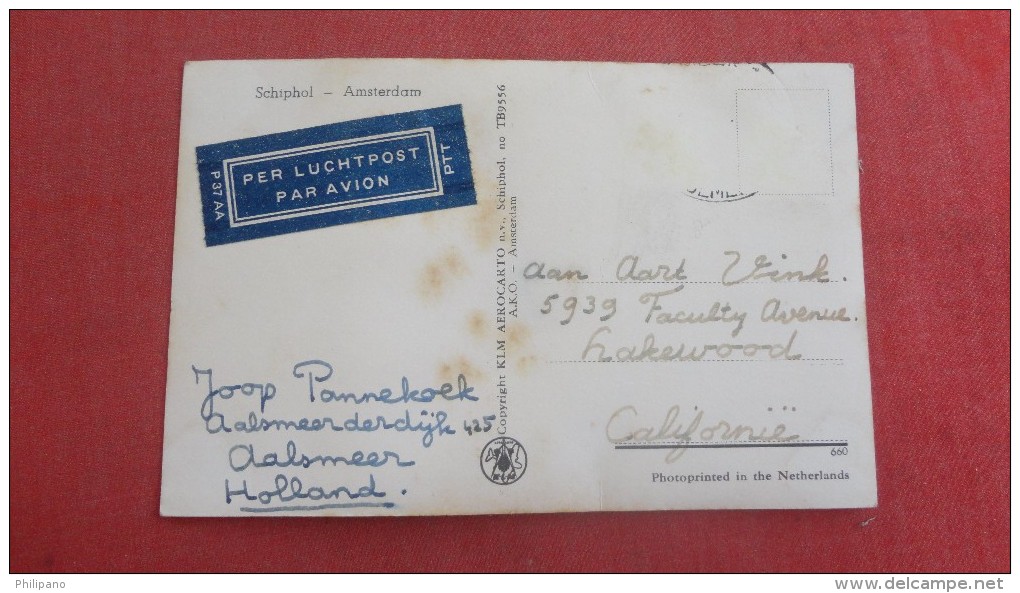 Schiphol – Amsterdam
P37AA
PER LUCHTPOST
PAR AVION
PTT
Joop Pannekoek
Aalsmeerderdijk 425
Aalsmeer
Holland.
Copyright KLM AEROCARTO n.v., Schiphol, no TB9556
A.K.O. – Amsterdam
aan Aart Vink.
5939 Faculty Avenue.
Lakewood
Californië
660
Photoprinted in the Netherlands
Philipano
www.delcampe.net